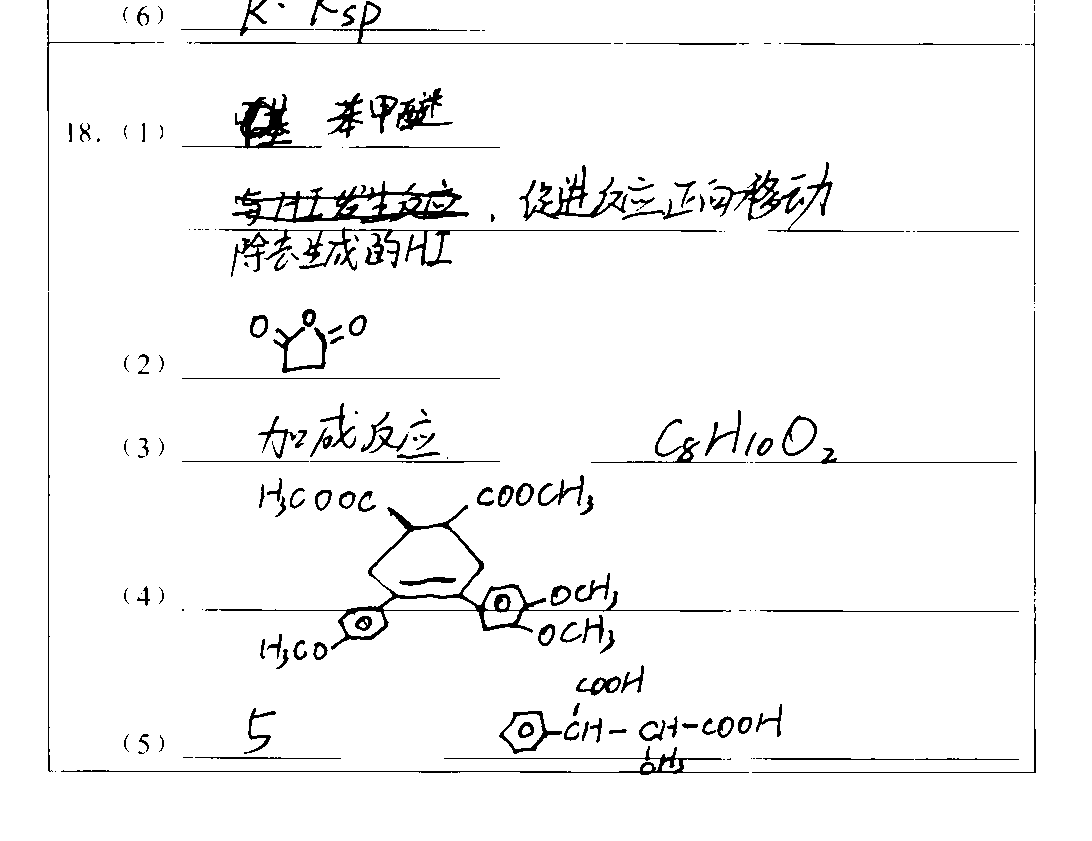 (6) K · Ksp
18. (1) 苯甲醚
与HI发生反应，促进反应正向移动
除去生成的HI
O O O
(2)
(3) 加成反应 C8H10O2
H3COOC COOCH3
(4) OCH3
OCH3
H3CO
COOH
(5) 5 CH-CH-COOH
CH3